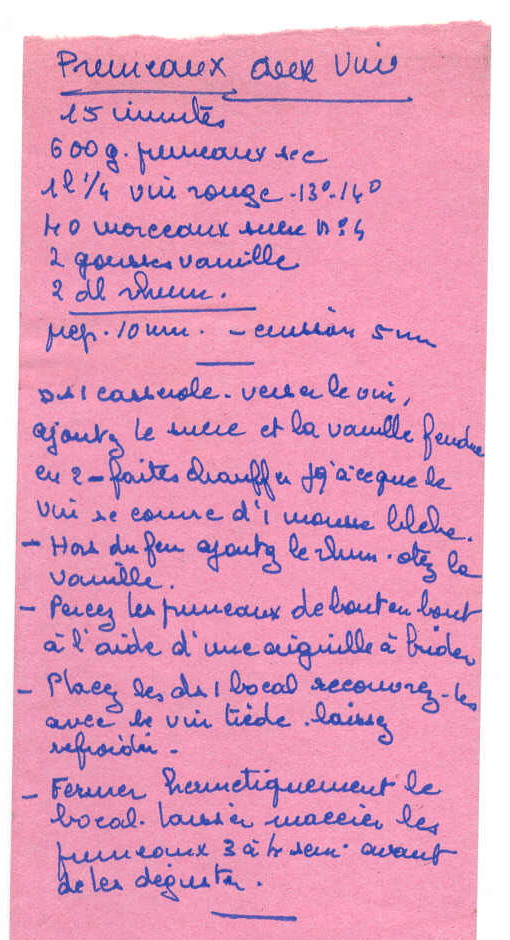 Pruneaux avec Vin
15 minutes
600 g. pruneaux sec
1 l 1/4 vin rouge -13°-14°
40 morceaux sucre n°4
2 gousses vanille
2 dl rhum.
prép. 10 mn. - cuisson 5 mn
ds 1 casserole. verser le vin,
ajoutez le sucre et la vanille fendue
en 2 - faites chauffer jq'à ce que le
vin se couvre d'1 mousse blche.
- Hors du feu ajoutez le rhum. otez la
vanille.
- Percez les pruneaux de bout en bout
à l'aide d'une aiguille à brider
- Placez les ds 1 bocal recouvrez-les
avec le vin tiède. laissez
refroidir.
- Fermer hermetiquement le
bocal. laisser macérer les
pruneaux 3 à 4 sem. avant
de les déguster.